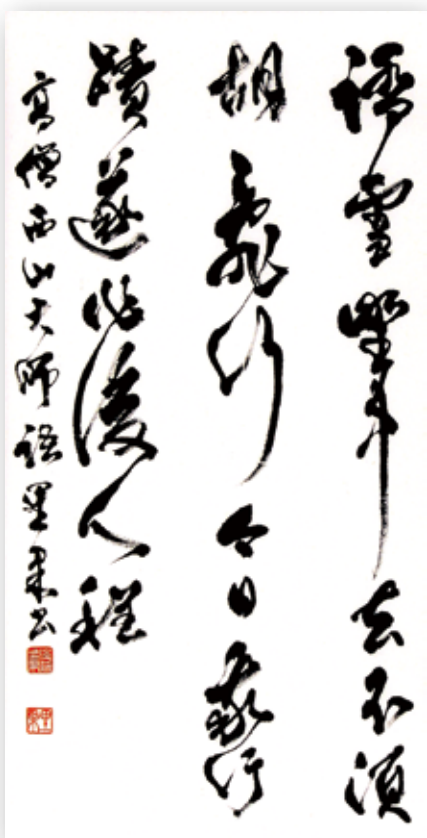 踏雪野中去不須
胡亂行今日我行
蹟遂作後人程
高僧西山大師語書